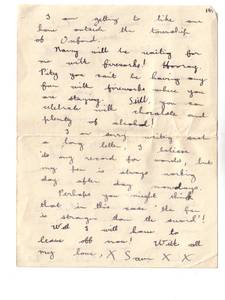 I am getting to like our
home outside the township
of Oxford.
Nanny will be waiting for
me with fireworks! Hooray.
Pity you can't be having any
fun with fireworks where you
are staying. Still, you can
celebrate with chocolate and
plenty of alcohol!
I am sorry writing such
a long letter, I believe
its any record for words, but
my pen is always working
day after day nowadays.
Perhaps you might think
that in this case 'the pen
is stronger than the sword'!
Well I will have to
leave off now! With all
my love, X Sam X X